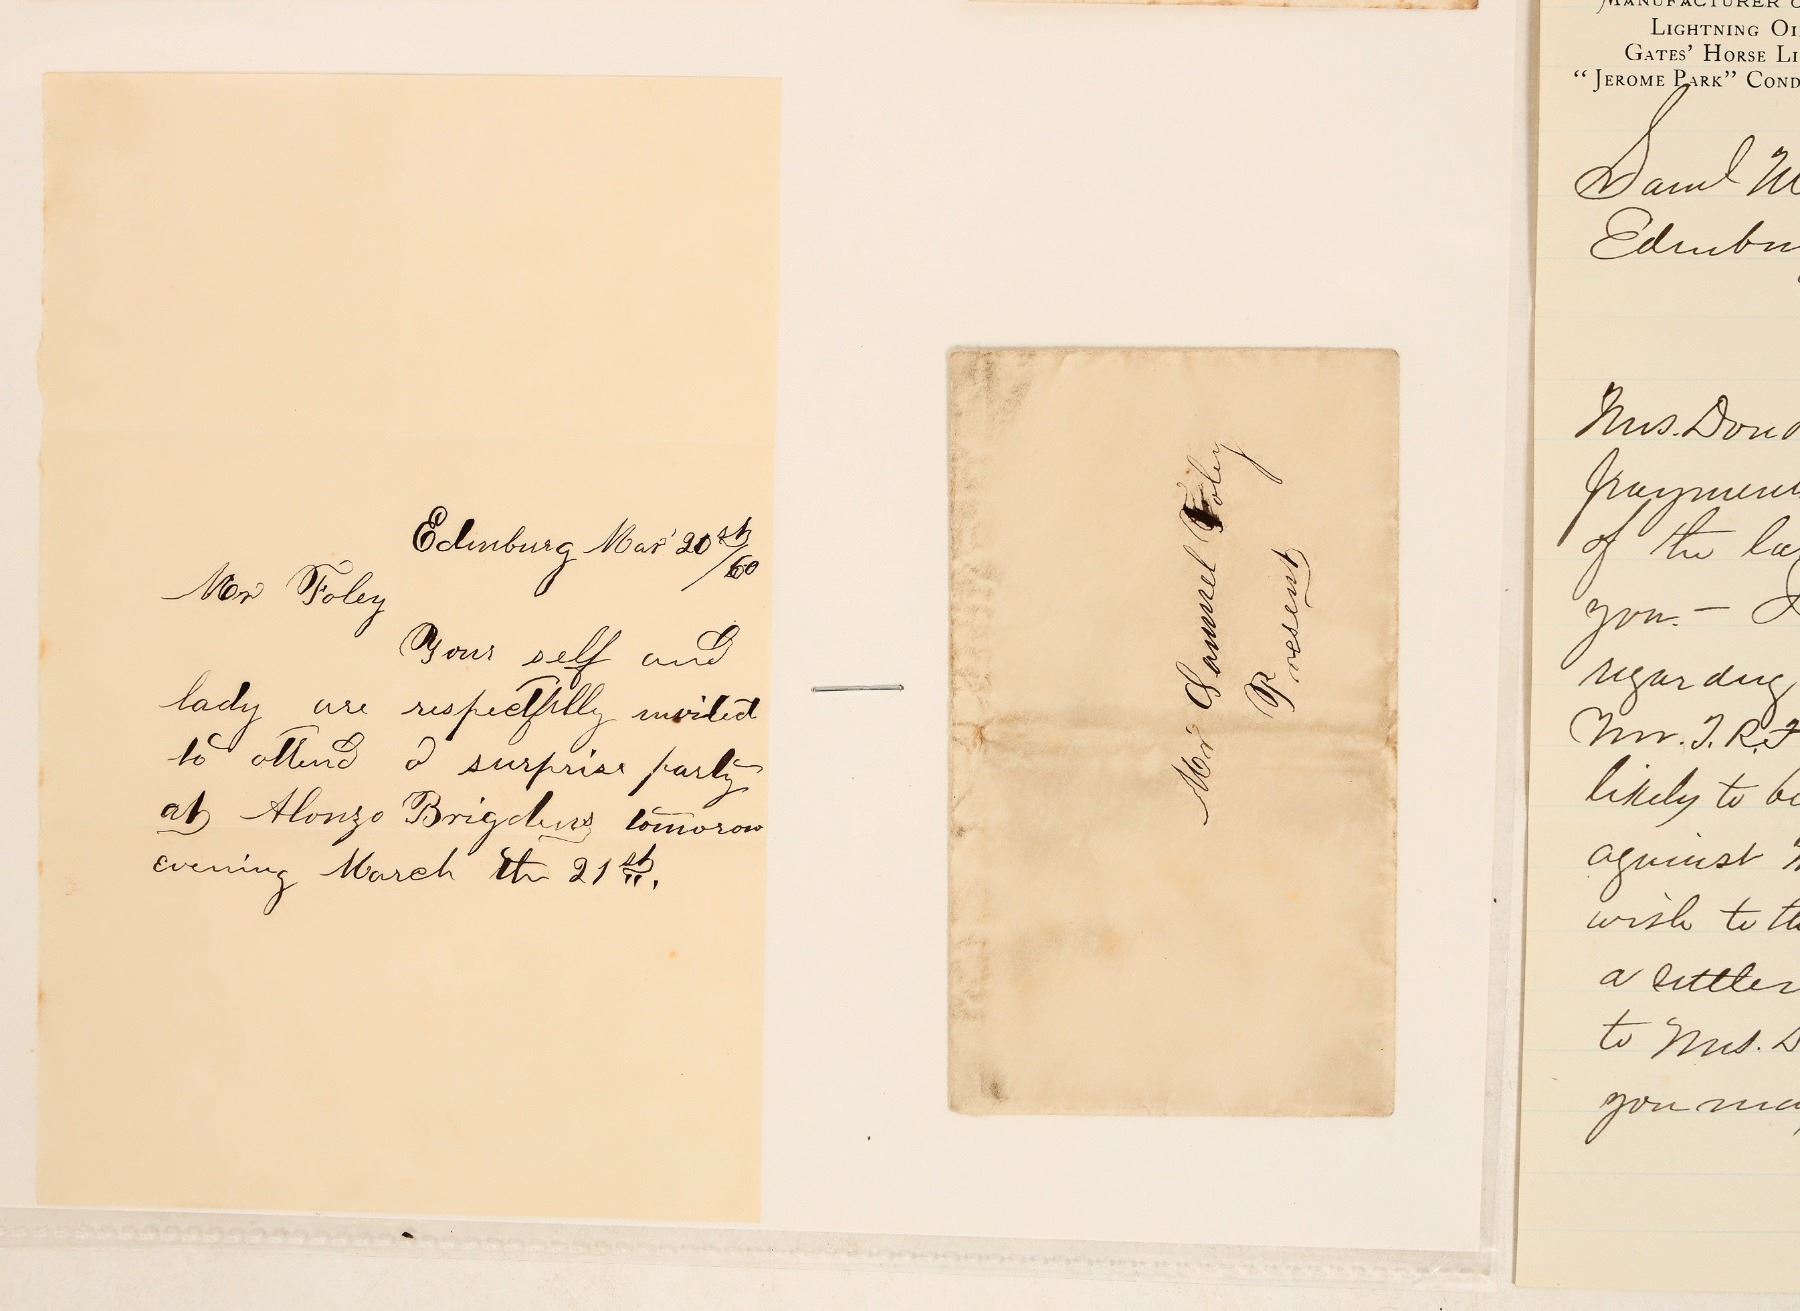 Edinburg Mar 20th
/60
Mr Foley
Your self and
lady are respectfully invited
to attend a surprise party
at Alonzo Brigdens tomorow
evening March the 21st.
Mr Samuel Foley
Present
MANUFACTURER O
LIGHTNING OI
GATES' HORSE LI
"JEROME PARK" COND
Saml M
Edinbu
Mrs. Dond
of the la
you. –
regarding
Mr. T. R. F
likely to be
against
wish to th
a
to Mrs. D
you may